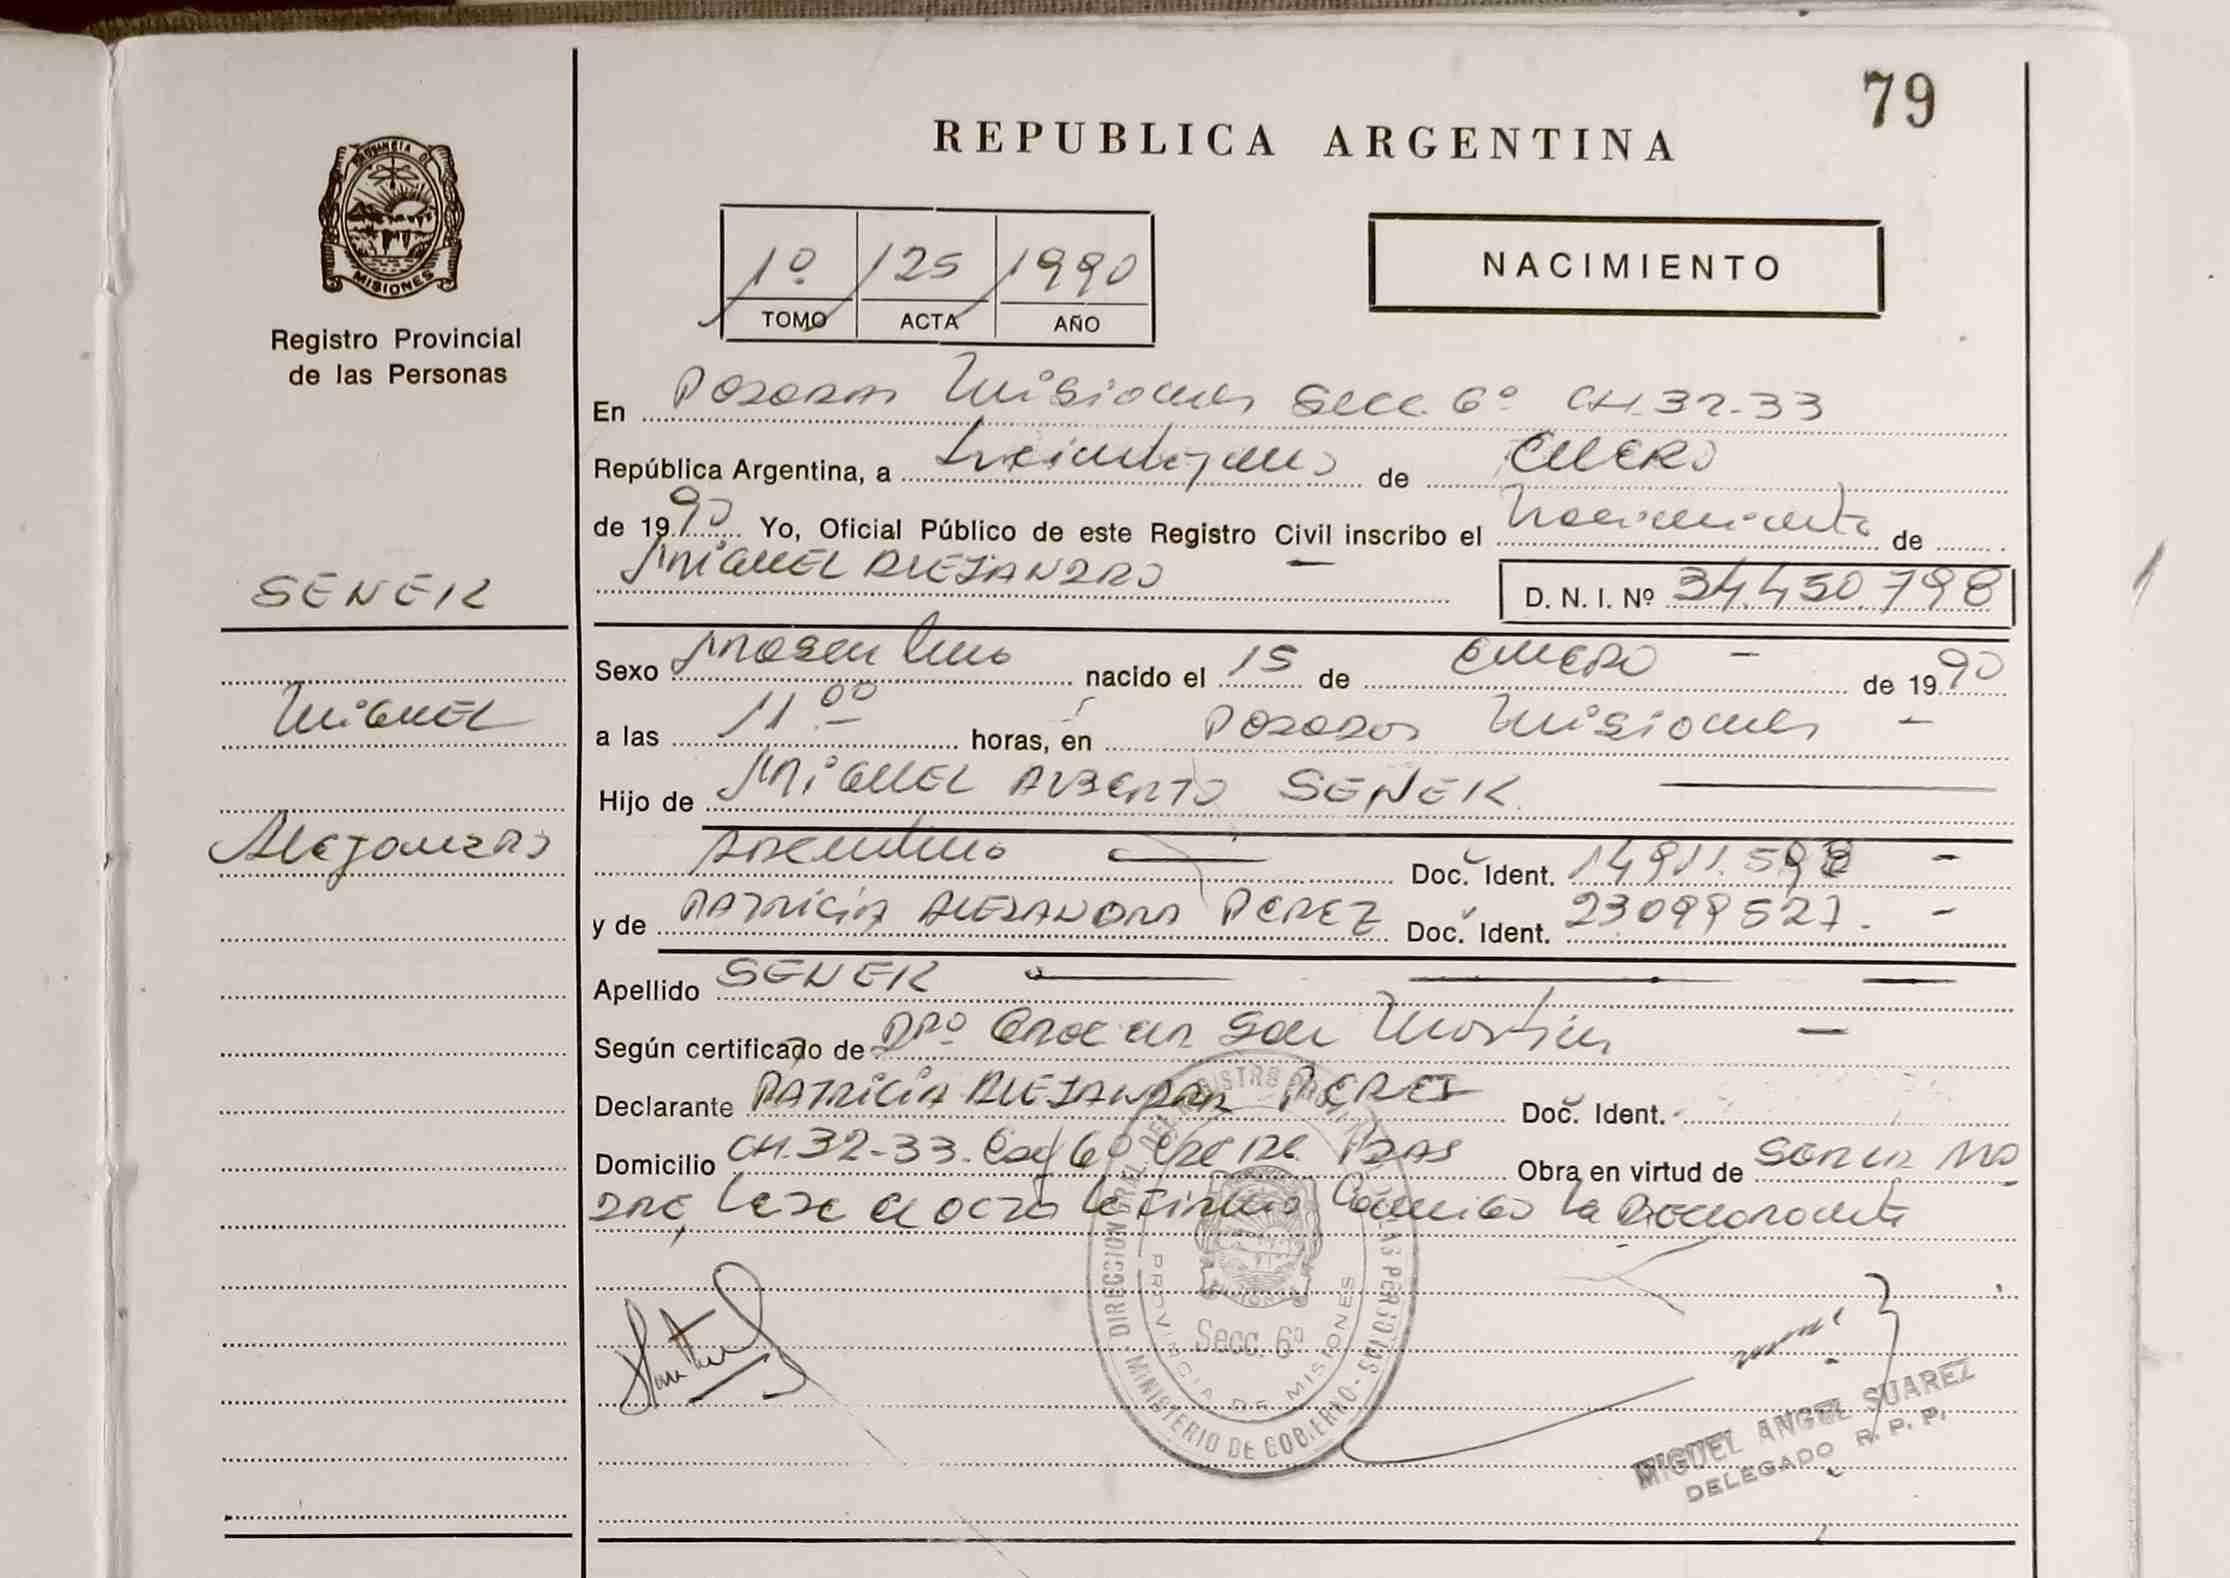 79
REPUBLICA ARGENTINA
PROVINCIA DE
MISIONES
Registro Provincial
de las Personas
1º 125 1990
TOMO ACTA AÑO
NACIMIENTO
En Posadas Misiones Secc. 6º CH. 32-33
República Argentina, a treintayuno de ENERO
de 1990 Yo, Oficial Público de este Registro Civil inscribo el Nacimiento de
MIGUEL ALEJANDRO —
D. N. I. Nº 34.450.798
SENEK
Miguel
Alejandro
Sexo Masculino nacido el 15 de ENERO - de 1990
a las 11 00 horas, en Posadas Misiones -
Hijo de MIGUEL ALBERTO SENEK
Argentino Doc. Ident. 14911.598 -
y de PATRICIA ALEJANDRA PEREZ Doc. Ident. 23099527. -
Apellido SENEK
Según certificado de Dra. San Martin —
Declarante PATRICIA ALEJANDRA PEREZ Doc. Ident.
Domicilio CH. 32-33. 6º PDAS Obra en virtud de SER LA MA
DRE, leida el acta la firma conmigo la Declarante
DIRECCION GRAL. DEL REGISTRO PROV. DE LAS PERSONAS - MINISTERIO DE GOBIERNO -
PROVINCIA DE MISIONES
MISIONES
Secc. 6º
MIGUEL ANGEL SUAREZ
DELEGADO R. P. P.